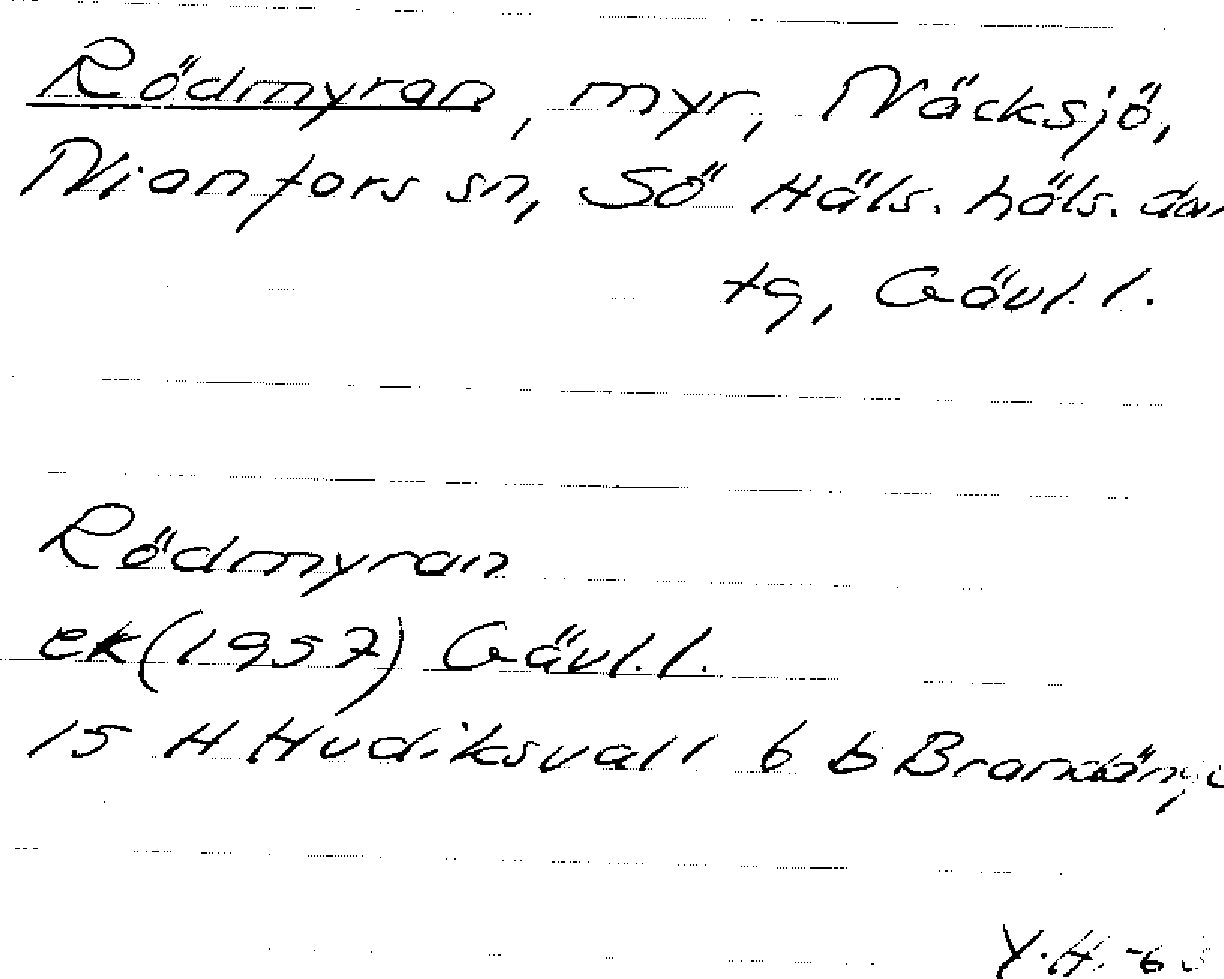 Rödmyran, myr, Näcksjö,
Nianfors sn, Sö Häls. häls. dom
tg, Gävl. l.
Rödmyran
ek (1957) Gävl. l.
15 H Hudiksvall 6 b
Y.H.